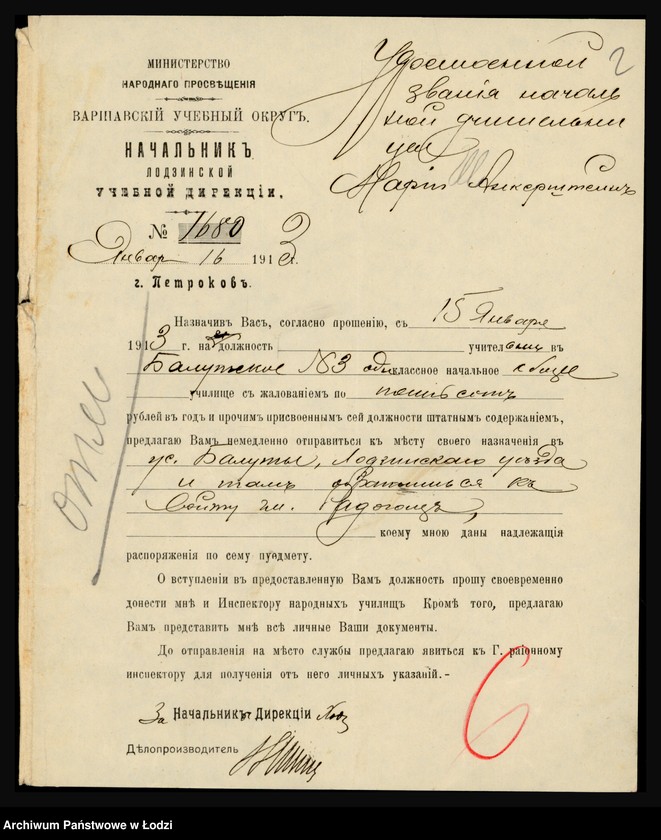 2
МИНИСТЕРСТВО
НАРОДНАГО ПРОСВѢЩЕНІЯ
ВАРШАВСКІЙ УЧЕБНЫЙ ОКРУГЪ.
НАЧАЛЬНИКЪ
ЛОДЗИНСКОЙ
УЧЕБНОЙ ДИРЕКЦІИ.
№ 1680
Январ 16 1913 г.
г. Петроковъ.
Удостоенной
званія началь
ной учительни
цы
Маріи Анкерштейнъ
Назначивъ Васъ, согласно прошенію, съ 15 Января
1913 г. на должность учительницы въ
Балутское №3 классное начальное
училище съ жалованіемъ по шестьсотъ
рублей въ годъ и прочимъ присвоеннымъ сей должности штатнымъ содержаніемъ,
предлагаю Вамъ немедленно отправиться къ мѣсту своего назначенія въ
ус. Балуты, Лодзинскаго уѣзда
и тамъ обратиться къ
Войту гм. Радогощъ,
коему мною даны надлежащія
распоряженія по сему предмету.
О вступленіи въ предоставленную Вамъ должность прошу своевременно
донести мнѣ и Инспектору народныхъ училищъ Кромѣ того, предлагаю
Вамъ представить мнѣ всѣ личные Ваши документы.
До отправленія на мѣсто службы предлагаю явиться къ Г. раіонному
инспектору для полученія отъ него личныхъ указаній.-
За Начальникъ Дирекціи
Дѣлопроизводитель
6
Archiwum Państwowe w Łodzi